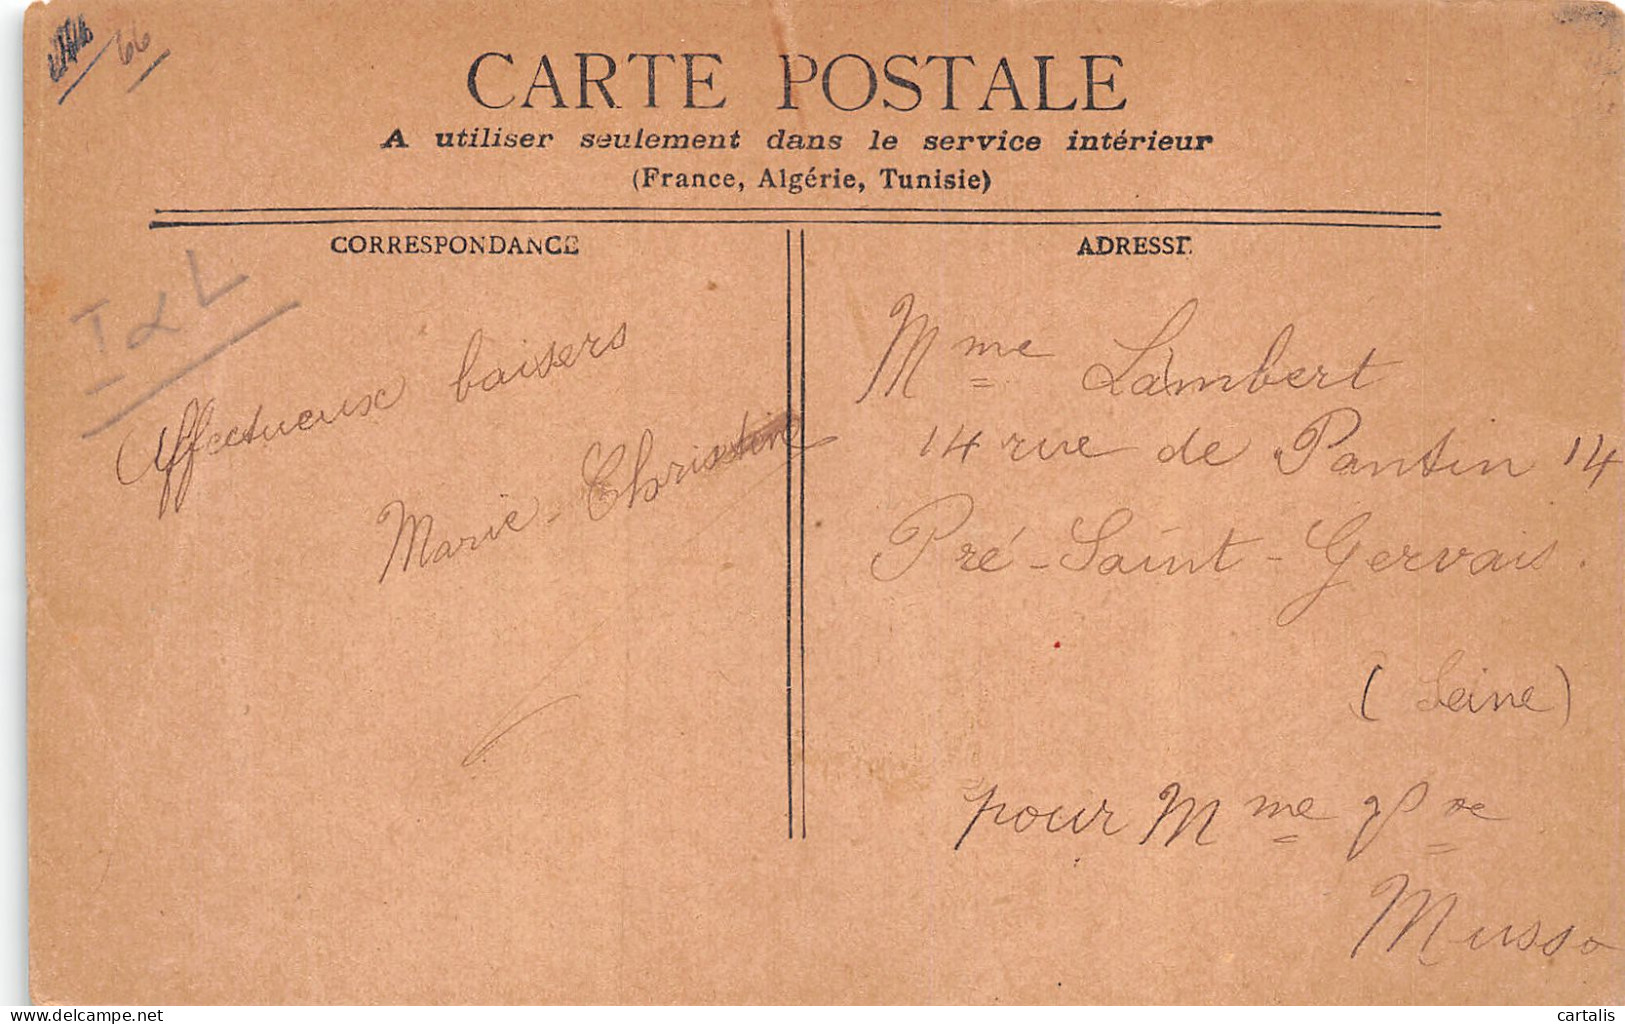 66
CARTE POSTALE
A utiliser seulement dans le service intérieur
(France, Algérie, Tunisie)
CORRESPONDANCE
ADRESSE
Affectueux baisers
Marie-Christine
Mme Lambert
14 rue de Pantin 14
Pré-Saint-Gervais.
(Seine)
pour Mme
Musso
www.delcampe.net
cartalis